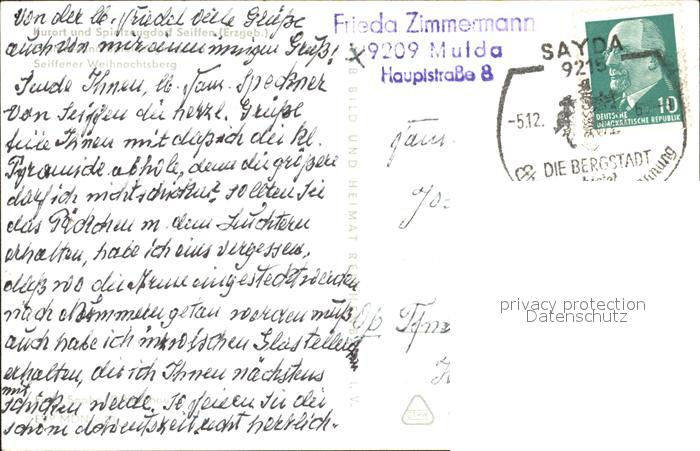 Von der lb. Friedel viele Grüße
auch von mir einen innigen Gruß!
Kurort und Spielzeugdorf Seiffen (Erzgeb.)
Seiffener Weihnachtsberg
Sende Ihnen, lb. Fam. Speckner
von Seiffen die herzl. Grüße
teile Ihnen mit daß ich die kl.
Pyramide abhole, denn die größere
darf ich nicht schicken, sollten Sie
das Päckchen m. dem Leuchtern
erhalten, habe ich eins vergessen,
daß wo die Arme eingesteckt werden
nach Nummern getan werden muß
auch habe ich inzwischen Glasteller
erhalten, die ich Ihnen nächstens
mit schicken werde. So feiern Sie die
schöne Adventszeit recht herrlich.
Frieda Zimmermann
9209 Mulda
Hauptstraße 8
BILD UND HEIMAT
SAYDA
9215
-5.12.
DIE BERGSTADT
bietet
10
DEUTSCHE
DEMOKRATISCHE REPUBLIK
Fam.
privacy protection
Datenschutz